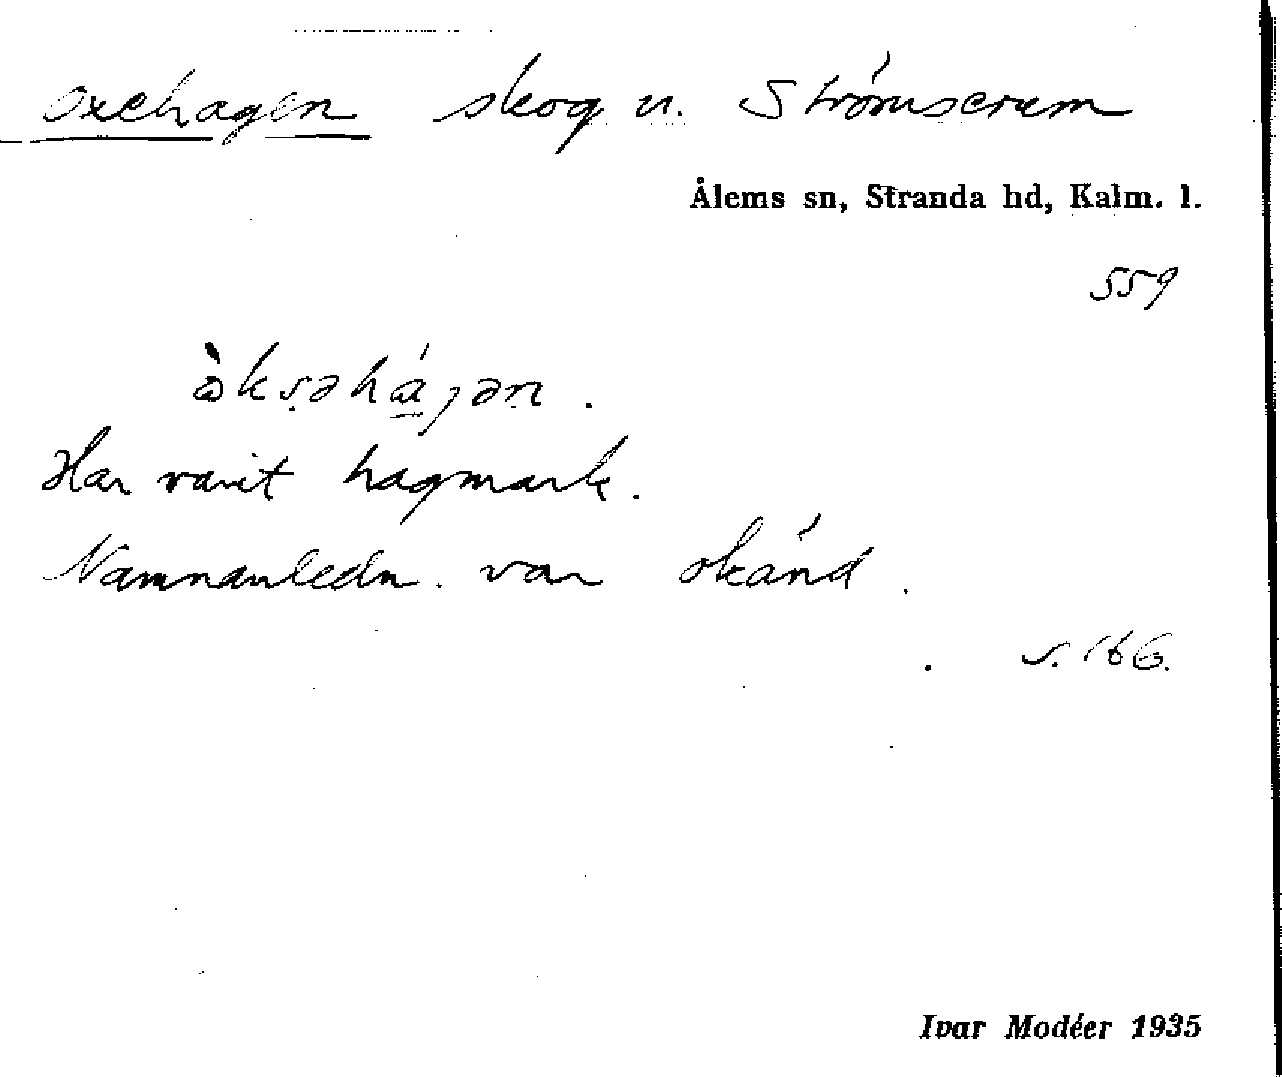 Oxehagen skog u. Strömserum
Ålems sn, Stranda hd, Kalm. l.
559
Har varit hagmark.
Namnanledn. var okänd.
s. 166.
Ivar Modéer 1935